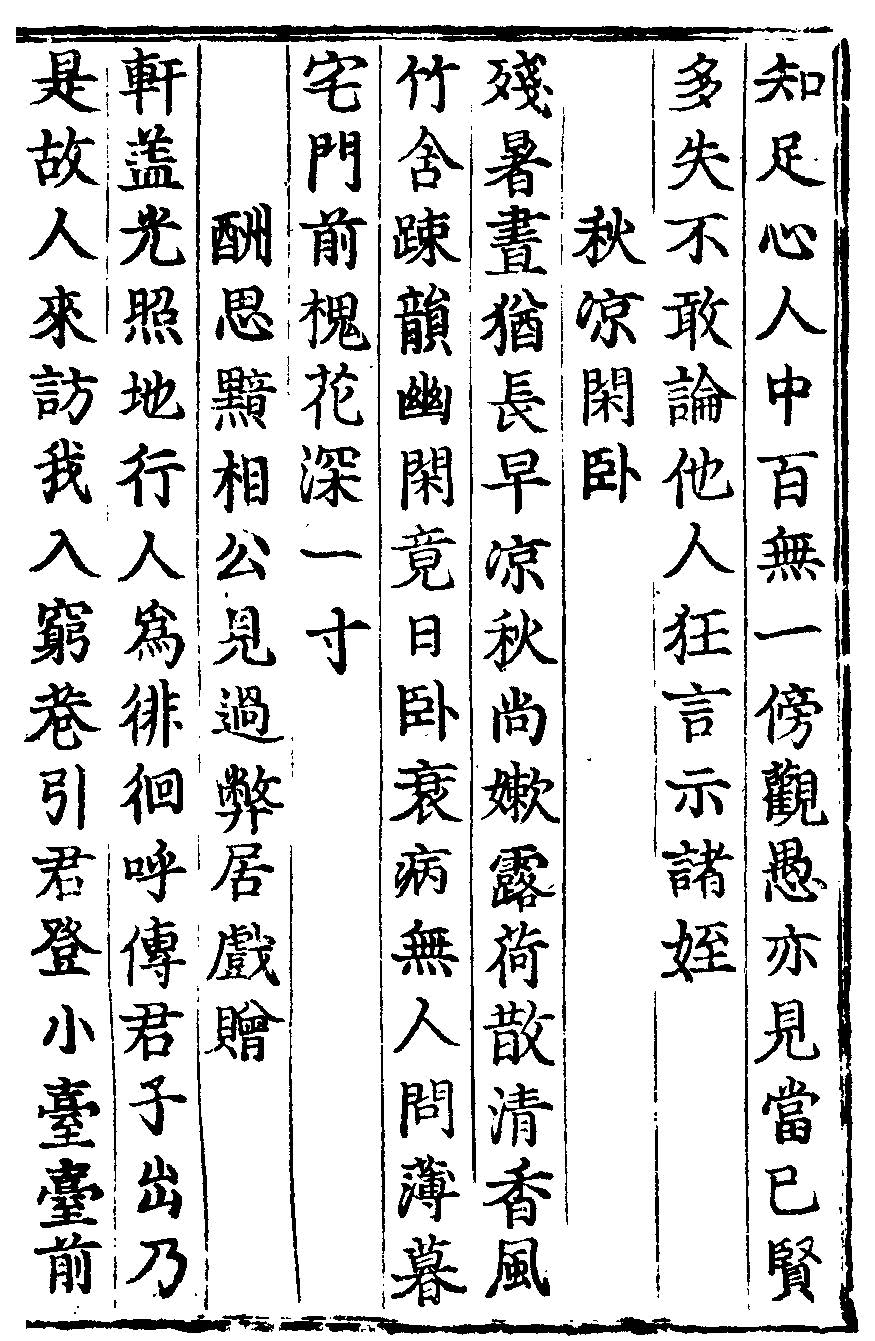 知足心人中百無一傍觀愚亦見當已賢
多失不敢論他人狂言示諸姪
秋凉閑卧
殘暑晝猶長早凉秋尚嫩露荷散清香風
竹含踈韻幽閑竟日卧衰病無人問薄暮
宅門前槐花深一寸
酬思黯相公見過弊居戲贈
軒盖光照地行人爲徘徊呼傳君子出乃
是故人來訪我入窮巷引君登小臺臺前